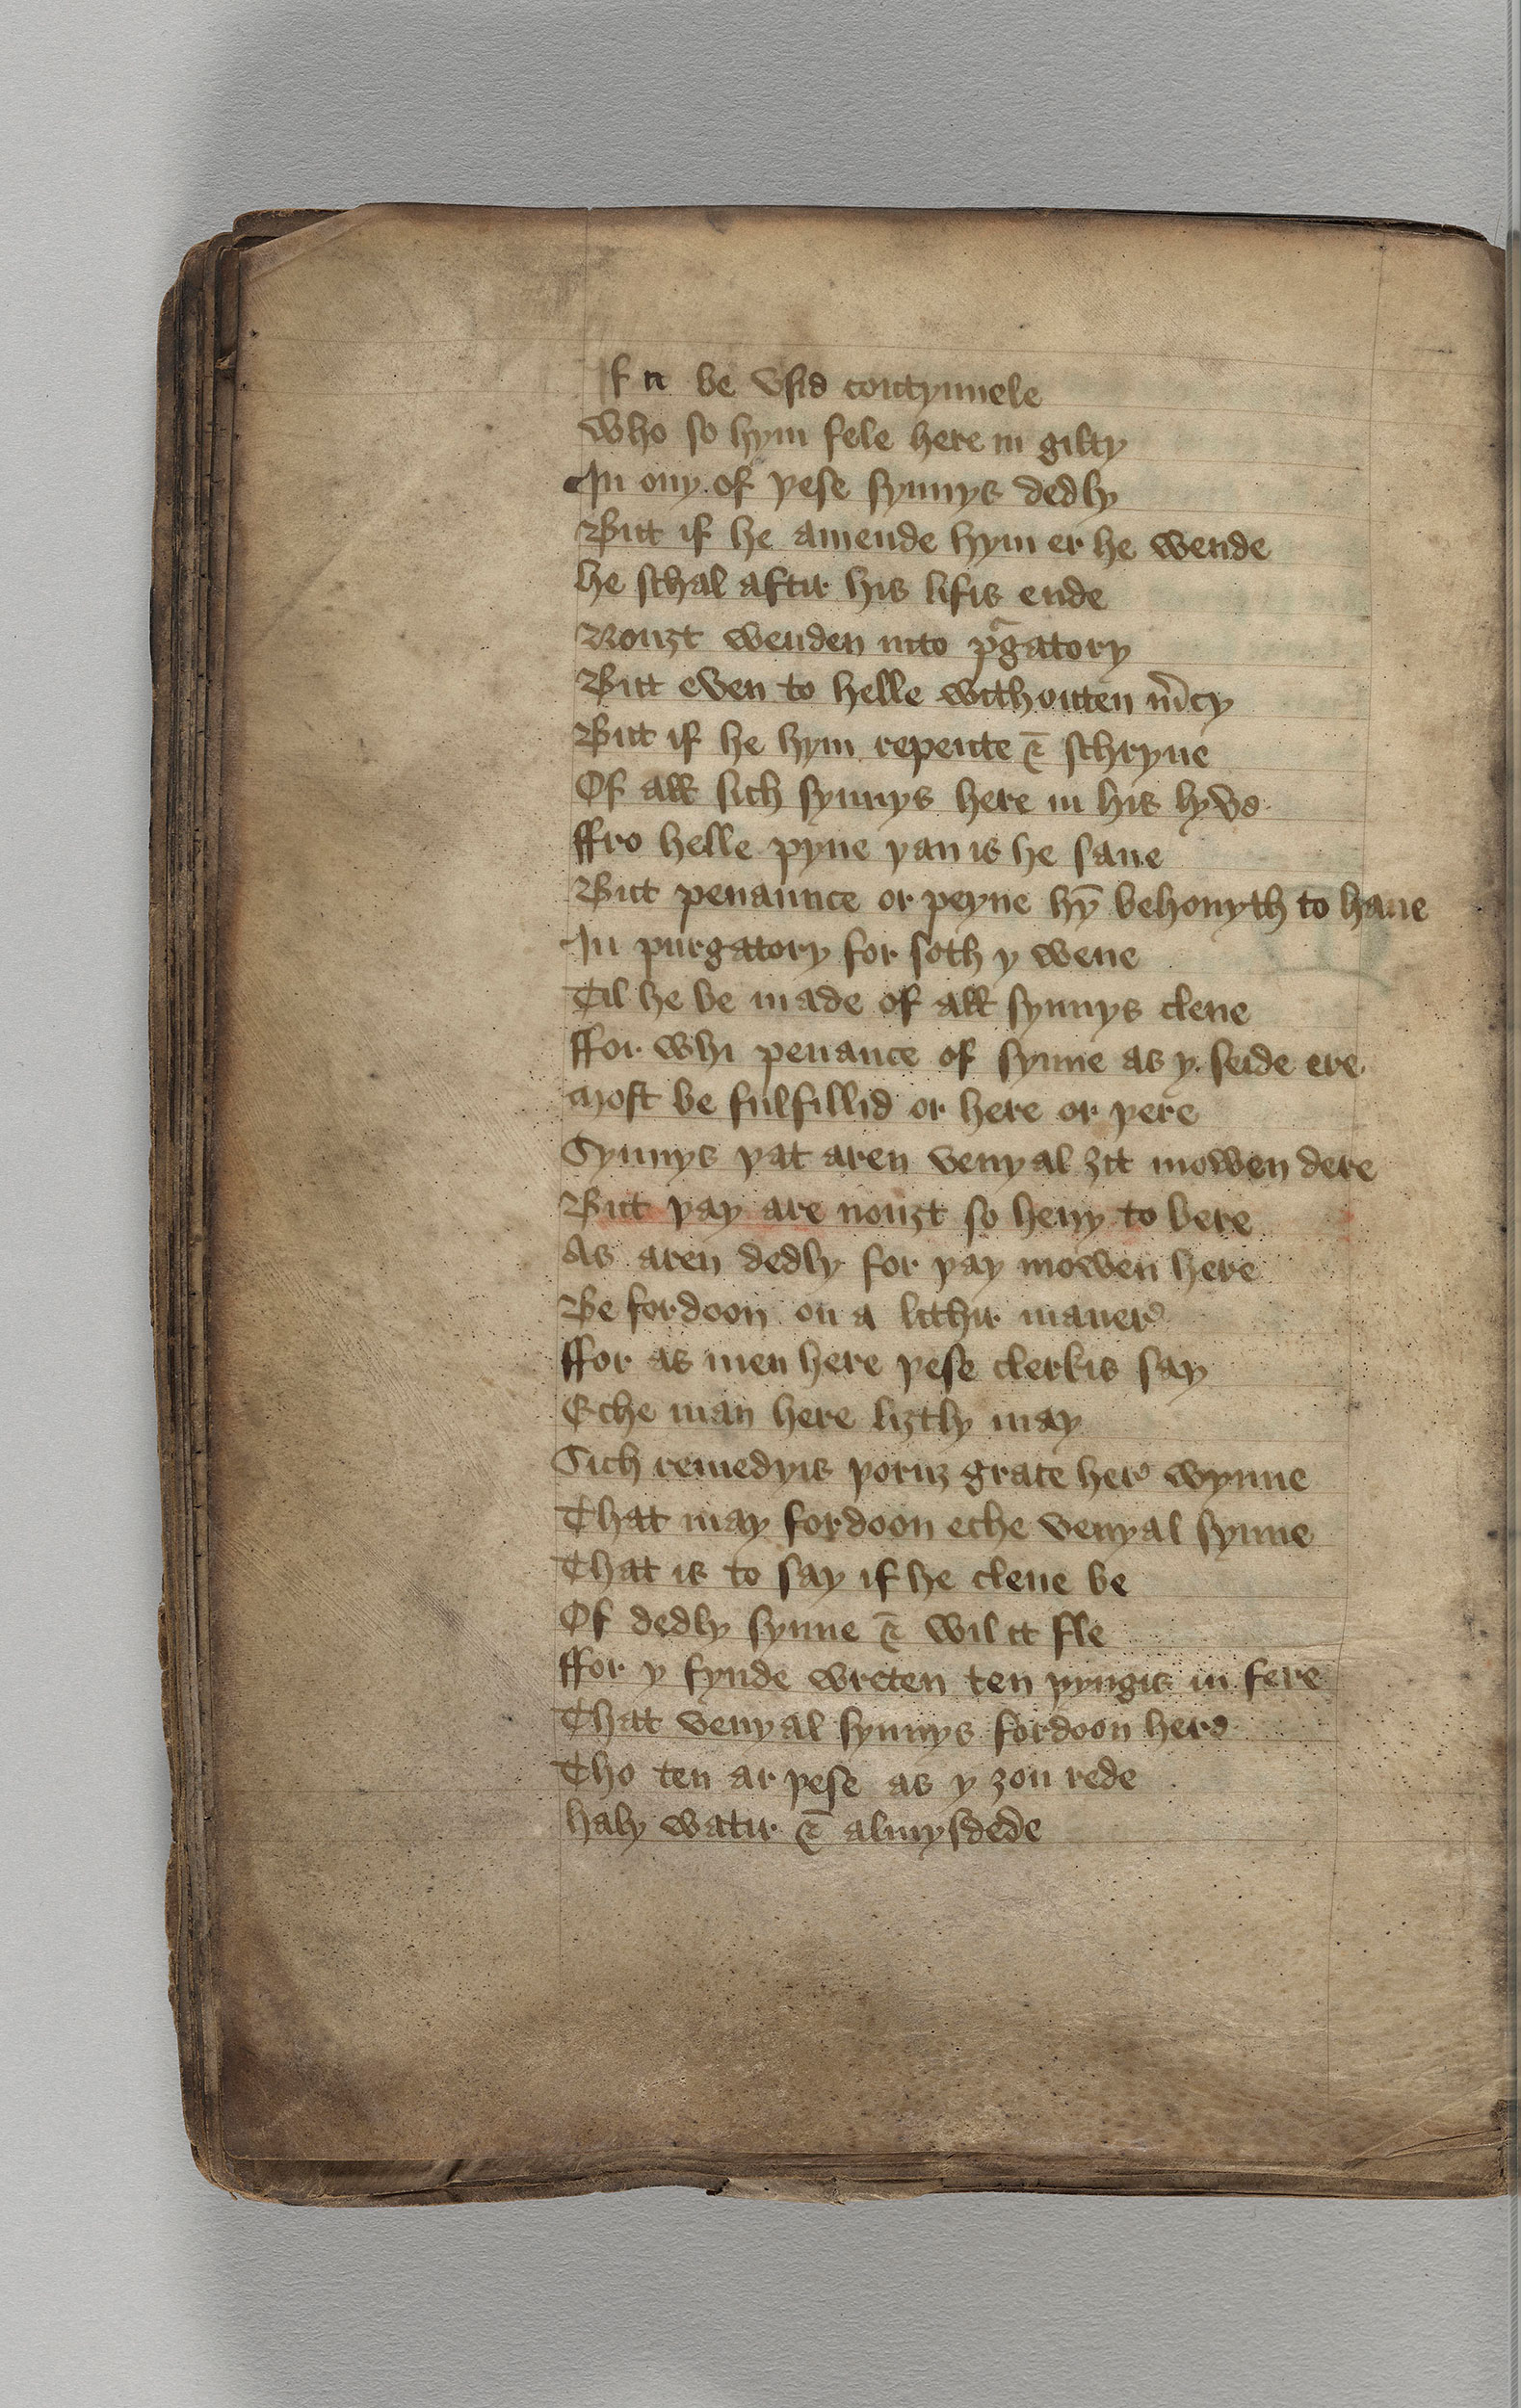 If it be vsid contynuele
Who so hym fele here in gilty
In ony of yese synnys dedly
But if he amende hym er he wende
he schal aftir his lifis ende
Nouȝt wenden into pᵃgatory
But even to helle withouten m̄cy
But if he hym repente & schryue
Of all sich synnys here in his lyve
ffro helle pyne yan is he saue
But penaunce or peyne hȳ behouyth to haue
In purgatory for soth y wene
Til he be made of all synnys clene
ffor whi penance of synne as y seide ere
Most be fulfillid or here or yere
Synnys yat aren venyal ȝit mowen dere
But yay are nouȝt so heuy to bere
As aren dedly for yay mowen here
Be fordoon on a lithir manere
ffor as men here yese clerkis say
Eche man here liȝtly may
Sich remedyis yoruȝ grace here wynne
That may fordoon eche venyal synne
That is to say if he clene be
Of dedly synne & wil it fle
ffor y fynde wreten ten yyngis in fere
That venyal synnys fordoon here
Tho ten ar yese as y ȝou rede
haly watir & almysdede